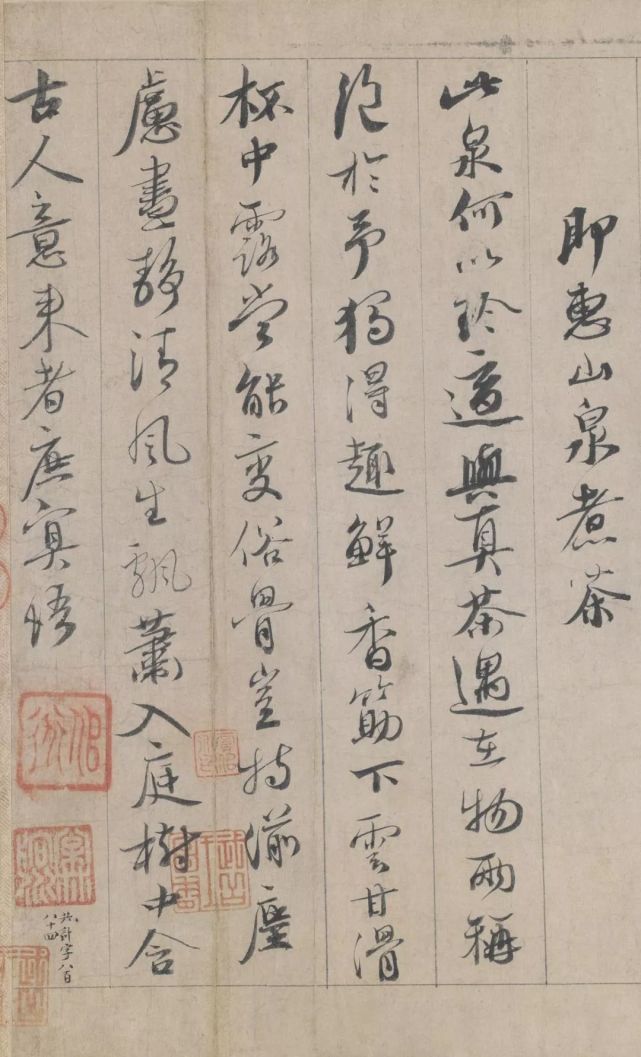 即惠山泉煮茶
此泉何以珎適與真茶遇在物兩稱
絶於予獨得趣鮮香筯下雲甘滑
杯中露當能變俗骨豈特湔塵
慮晝靜清風生飄蕭入庭樹中含
古人意来者庶冥悟
共計字八百
八十四